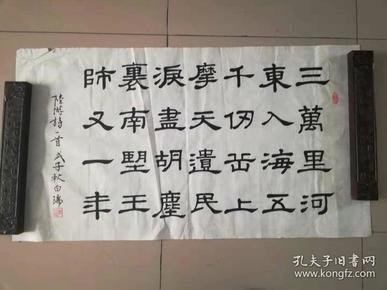 三萬里河
東入海五
千仞岳上
摩天遺民
淚盡胡塵
裏南望王
師又一年
陸游詩一首 戊子秋白瑞
孔夫子旧书网
www.kongfz.com